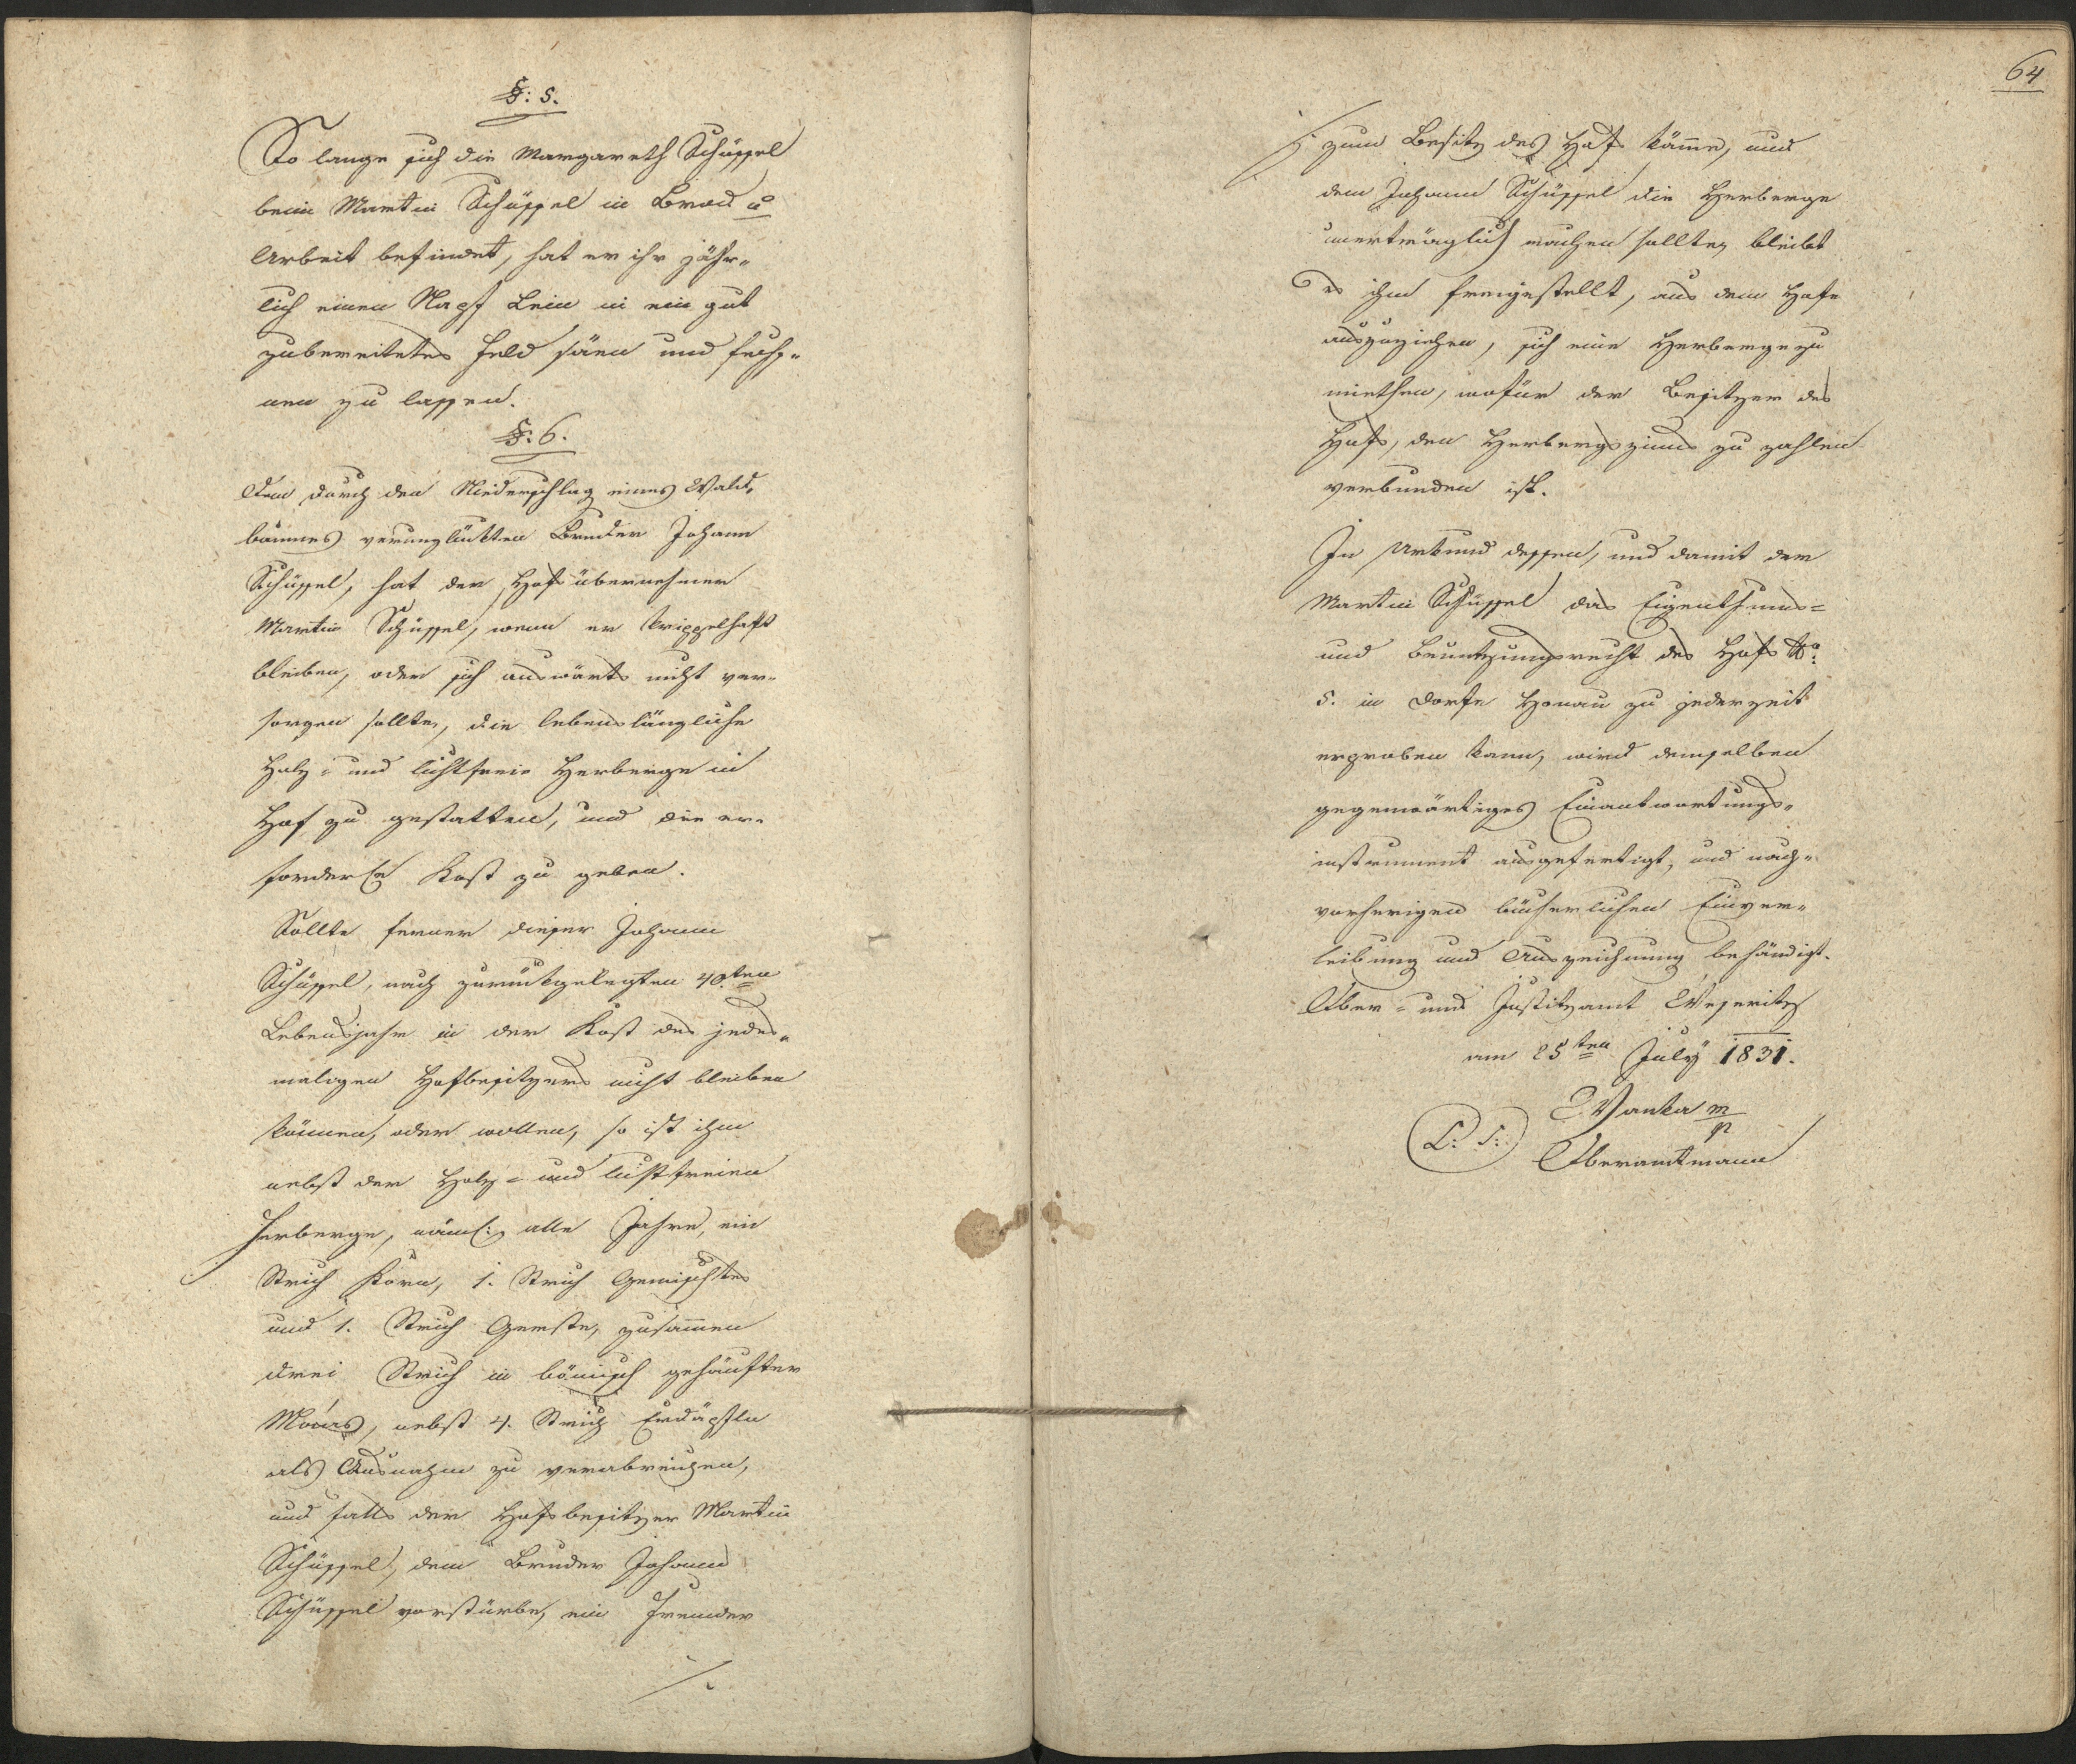 §: 5.
So lange sich die Margareth Schüssel
beim Martin Schüssel in Brod u
Arbeit befindet, hat er ihr jähr-
lich einen Napf Lein in ein gut
zubereitetes Feld säen und fechs-
nen zu lassen.
§. 6.
Dem durch den Niederschlag eines Wald-
baumes verunglükten Bruder Johann
Schüssel, hat der Hofsübernehmer
Martin Schüssel, wenn er krippelhaft
bleiben, oder sich auswärts nicht ver-
sorgen sollte, die lebenslängliche
Holz- und lichtfreie Herberge in
Hof zu gestatten, und die er-
forderl. Kost zu geben.
Sollte ferner dieser Johann
Schüssel, nach zurückgelegten 40ten
Lebensjahr in der Kost des jedes-
maligen Hofbesitzers nicht bleiben
können, oder wollen, so ist ihm
nebst der Holz- und lichtfreien
Herberge, näml. alle Jahre, ein
Strich Korn, 1. Strich Gemischtes
und 1. Strich Gerste, zusammen
drei Strich in bömisch gehäufter
Maas, nebst 4. Strich Erdäpfln
als Ausnahm zu verabreichen,
und falls der Hofsbesitzer Martin
Schüssel, dem Bruder Johann
Schüssel vorstürbe, ein Fremder
./.
64
./. zum Besitz des Hofs käme, und
dem Johann Schüssel die Herberge
unerträglich machen sollte, bleibt
es ihm freigestellt, aus dem Hofe
auszuziehen, sich eine Herberge zu
miethen, wofür der Besitzer des
Hofs, den Herbergszinns zu zahlen
verbunden ist.
In Urkund dessen, und damit der
Martin Schüssel das Eigenthums-
und Benutzungsrecht des Hofs No:
5. in Dorfe Honau zu jederzeit
erproben kann, wird demselben
gegenwärtiges Einantwortungs-
instrument ausgefertigt, und nach-
vorherigen bücherlichen Einver-
leibung und Auszeichnung behändigt.
Ober- und Justitzamt Weseritz
am 25ten July 1831.
L: S: Wanka m/p
Oberamtmann